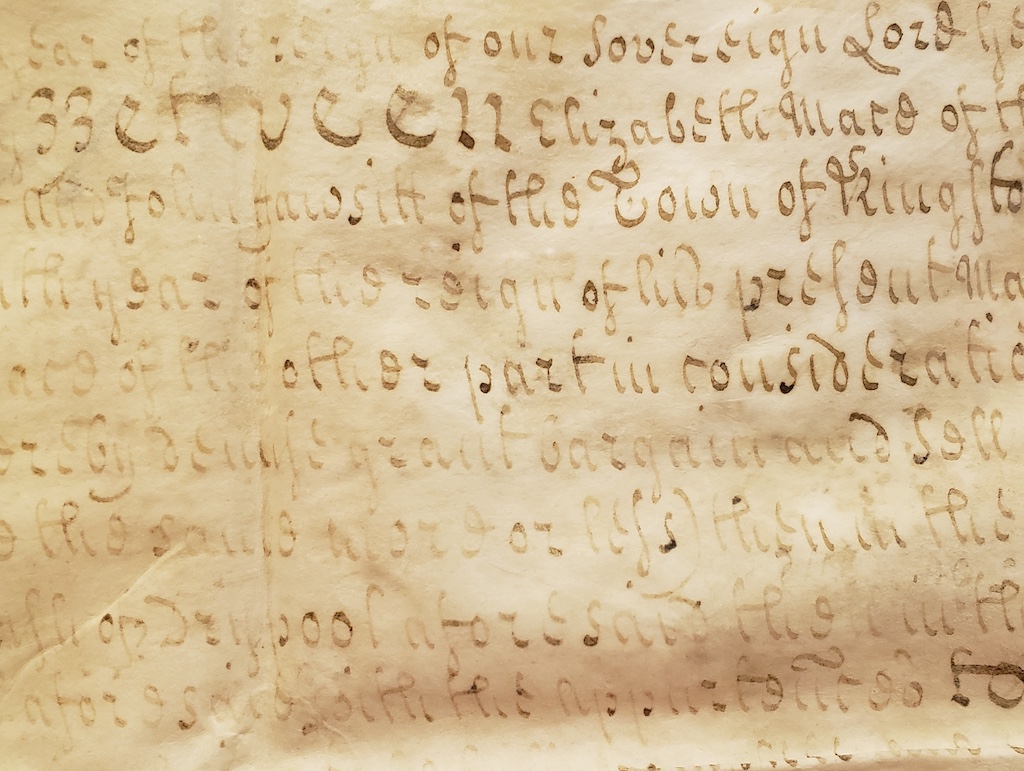 year of the reign of our Sovereign Lord
BEtWEEn Elizabeth Mace of
and John Jawsitt of the Town of Kingsto
year of the reign of his present Ma
ace of the other part in consideratio
ereby demise grant bargain and Sell
the same more or less) then in the
of Drypool aforesaid the
aforesaid with the appurtences To